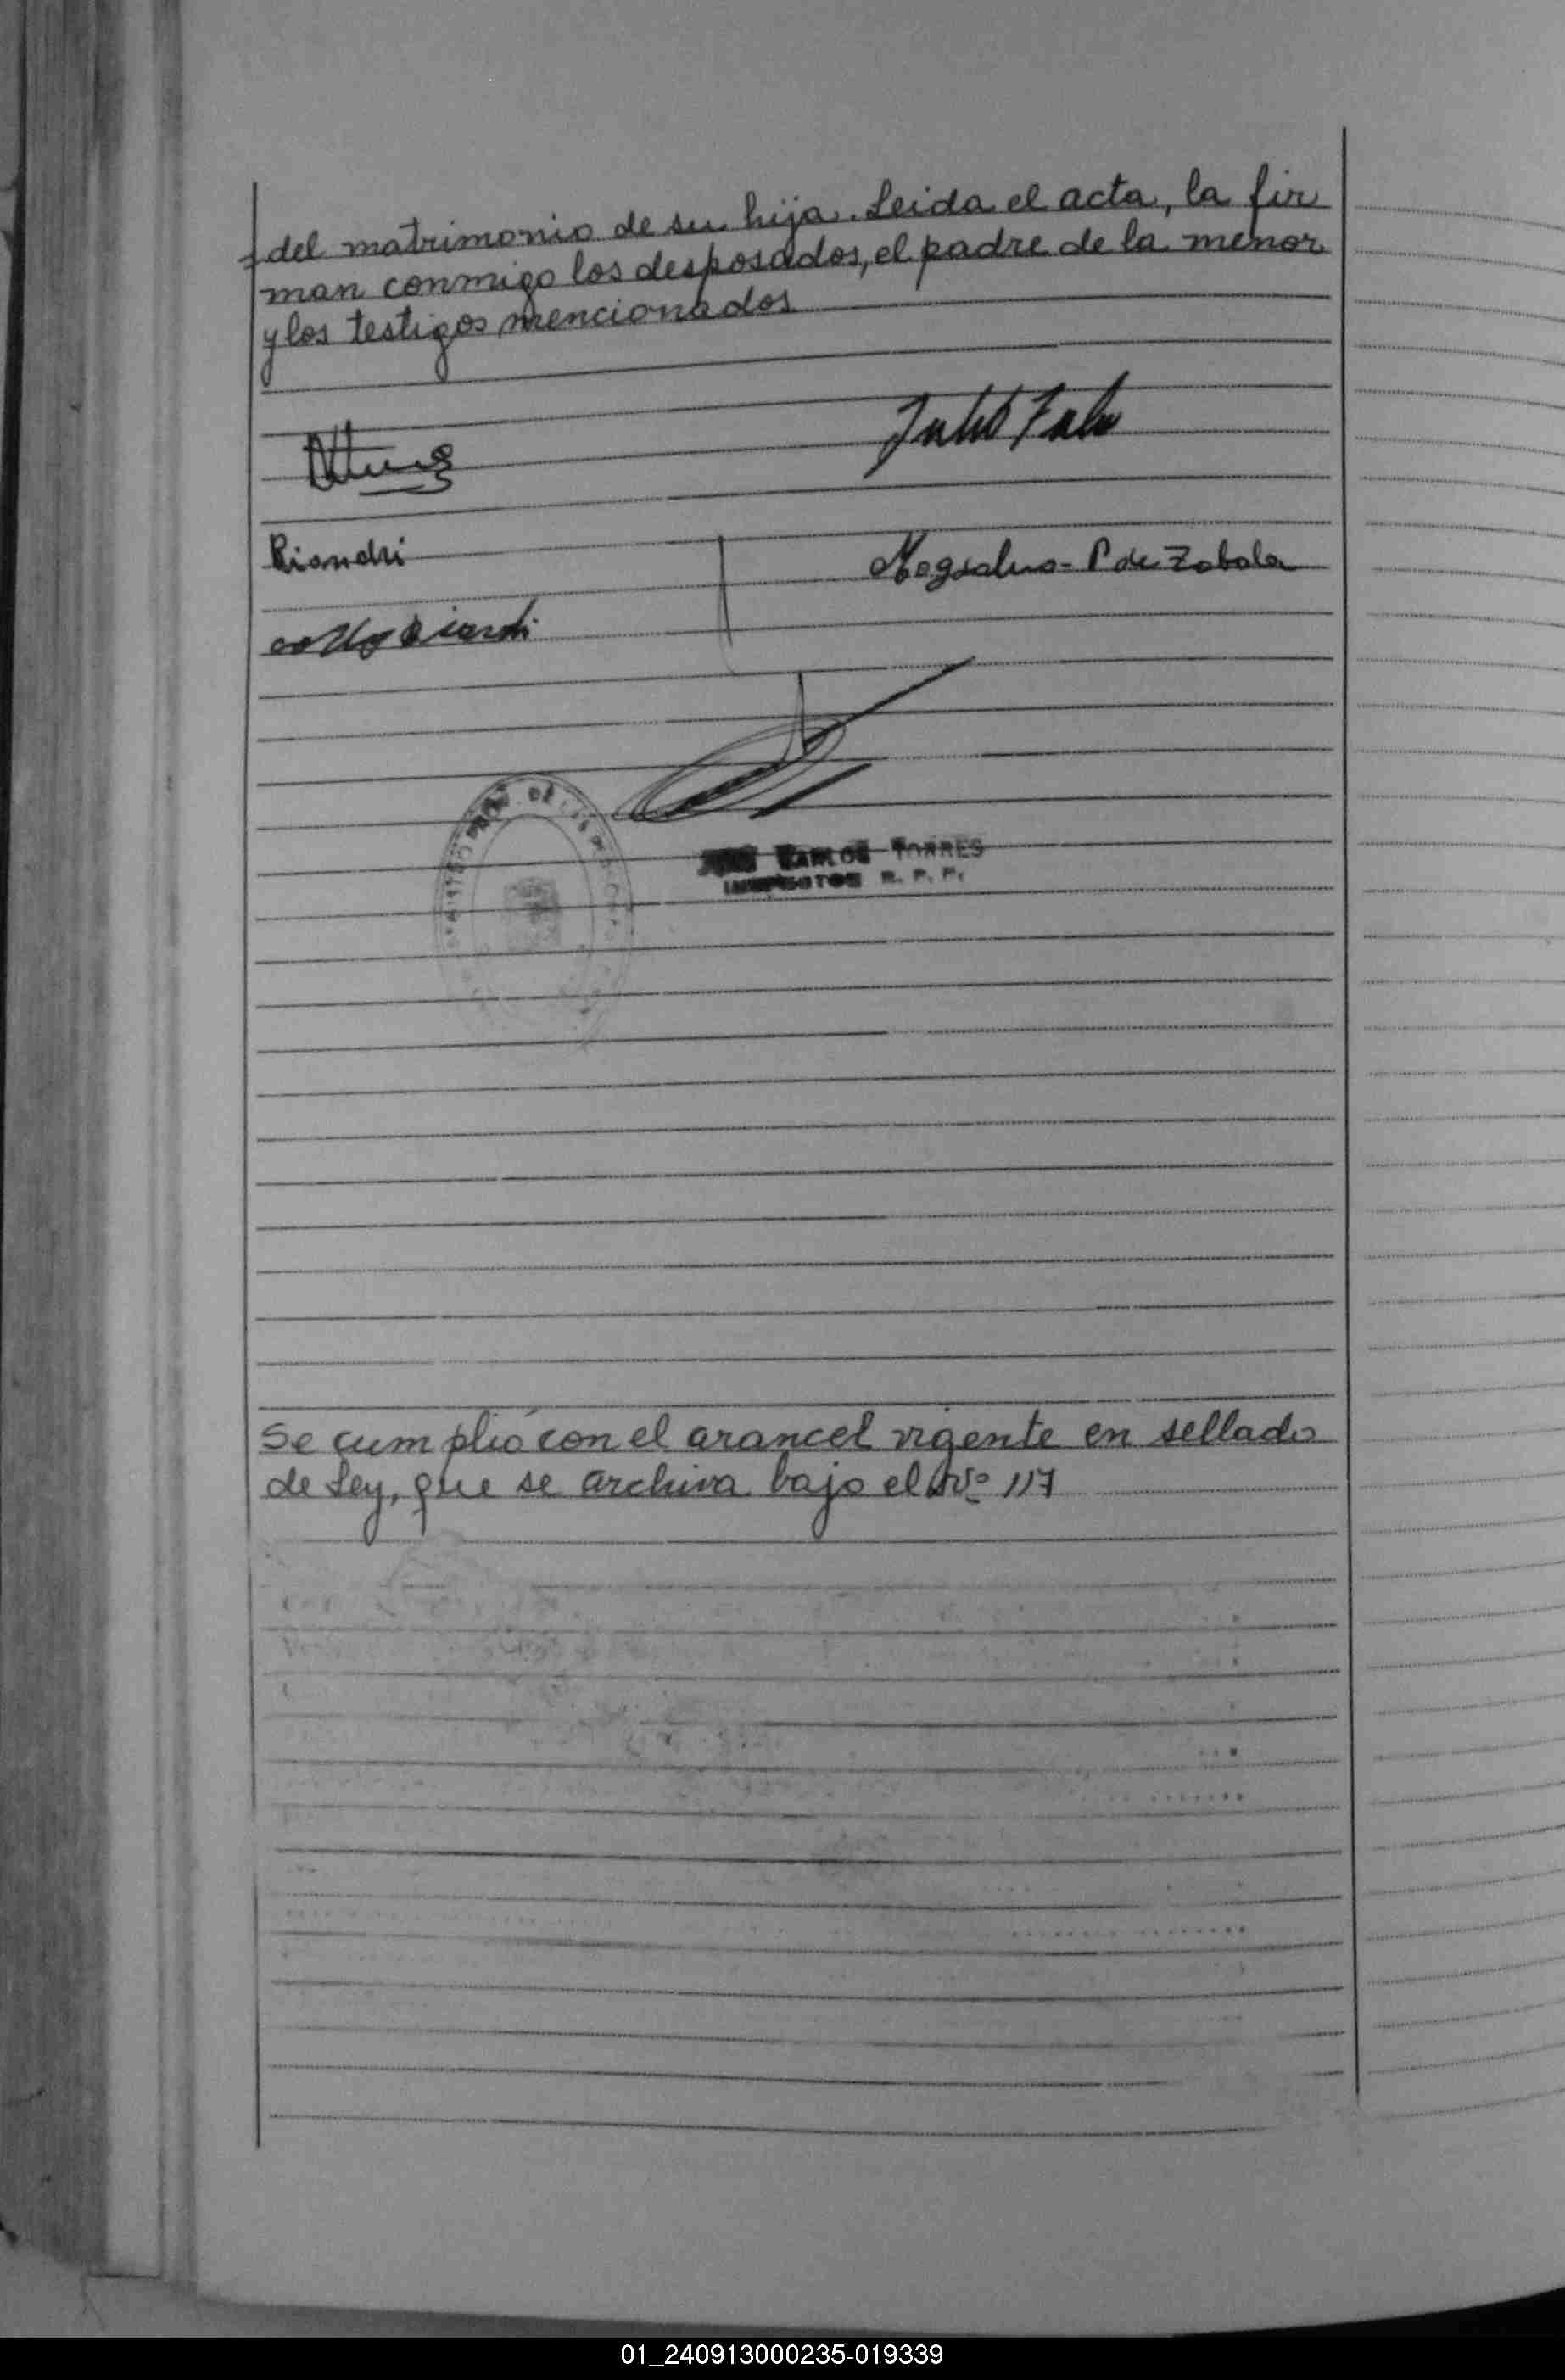 del matrimonio de su hija. Leida el acta, la fir
man conmigo los desposados, el padre de la menor
y los testigos mencionados
Julio
Biandri
P de Zabala
CARLOS TORRES
INSPECTOR R. P. P.
Se cumplió con el arancel vigente en sellado
de Ley, que se archiva bajo el Nº 117
01_240913000235-019339